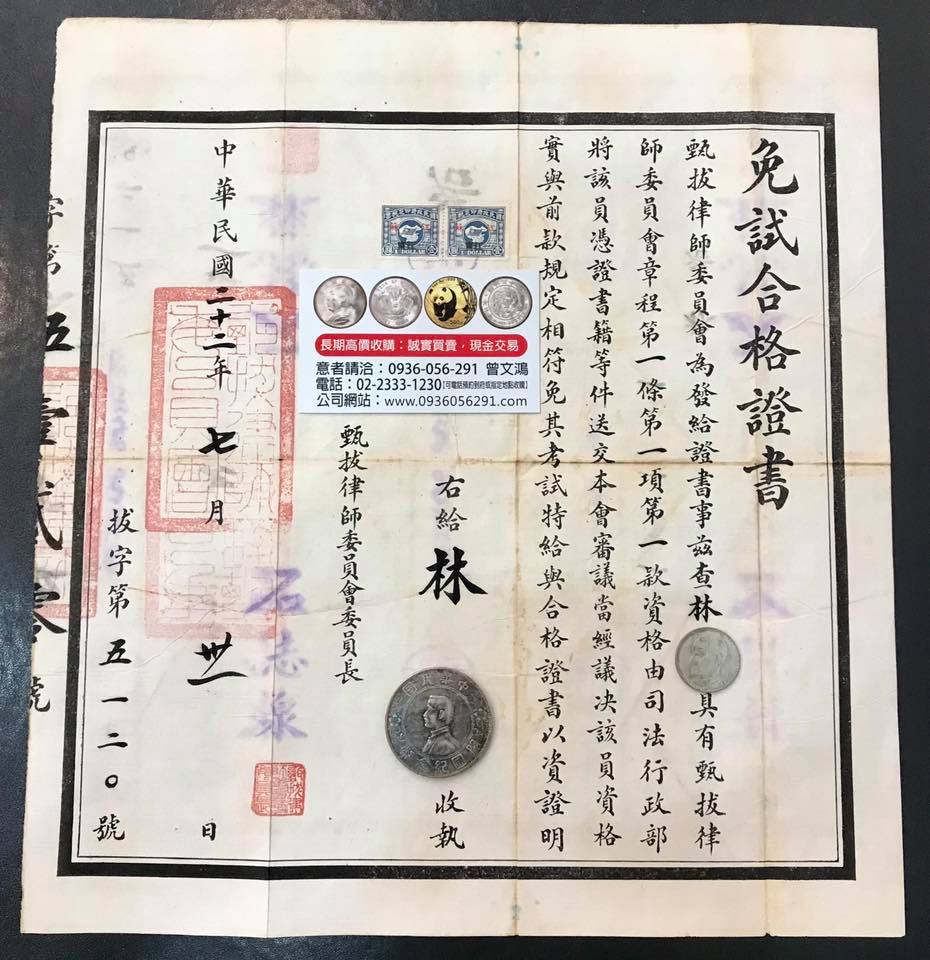 免試合格證書
甄拔律師委員會為發給證書事茲查林 具有甄拔律
師委員會章程第一條第一項第一款資格由司法行政部
將該員憑證書籍等件送交本會審議當經議决該員資格
實與前款規定相符免其考試特給與合格證書以資證明
1 DOLLAR
1 DOLLAR
長期高價收購：誠實買賣，現金交易
意者請洽：0936-056-291 曾文鴻
電話：02-2333-1230【可電話預約到府或指定地點收購】
公司網站：www.0936056291.com
右給 林 收執
甄拔律師委員會委員長
石志泉
中華民國二十二年七月卅一日
拔字第五一二〇號
字第五壹貳零號